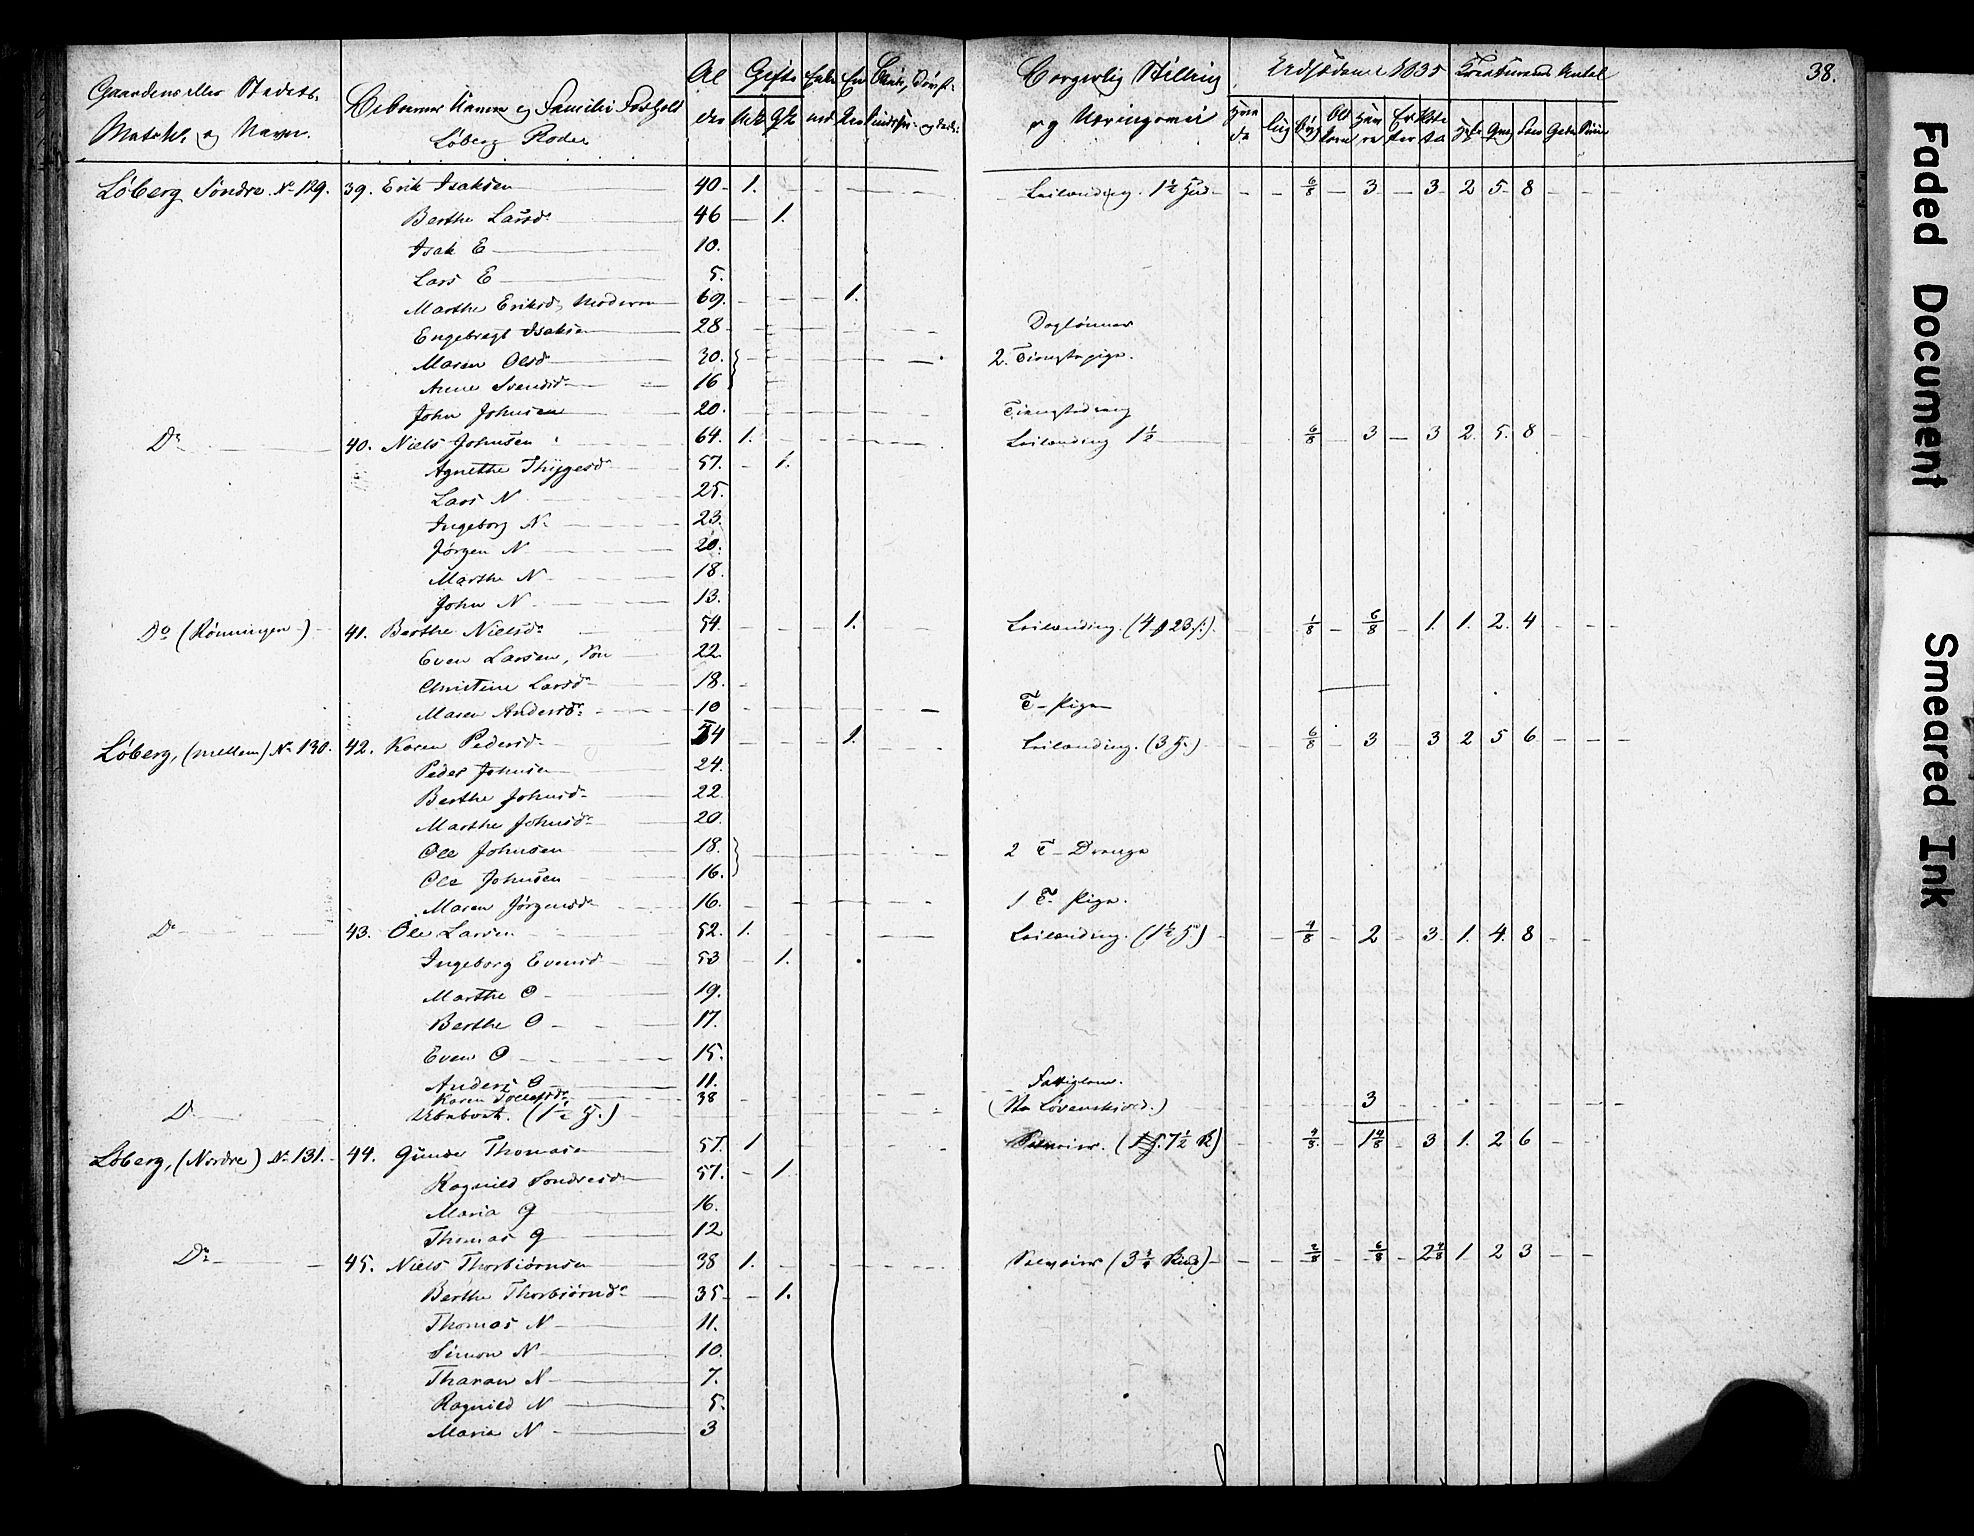 38.
Gaardens eller Stedets
Matrkl. og Navn.
Beboernes Navne og Familie Forhold
Løberg Rode
Al
der
Gifte
Mk Qk
Borgerlig Stilling
og Næringsvei
Udsæden i 1835
Kreaturenes Antal
Løberg Søndre No 129. 39. Erik Isaksen 40 1. Leilænding. 1½ Hud 6/8 3 3 2 5 8
Berthe Larsdr 46 1.
Isak E 10.
Lars E 5.
Marthe Eriksdr, Moderen 69. 1.
Engebregt Isaksen 28 Daglønner
Maren Olsdr 30. 2. Tienstepige.
Anne Svendsdr 16
John Johnsen 20. Tienestedreng
Do 40. Niels Johnsen 64. 1. Leilænding 1½ 6/8 3 3 2. 5. 8
Agnethe Thygesdr 57. 1.
Lars N 25.
Ingeborg N. 23.
Jørgen N 20.
Marthe N 18.
John N. 13.
Do (Rønningen) 41. Berthe Nielsdr 54. 1. Leilænding. (4 s 23 s:). 1/8 6/8 1. 1. 2. 4
Even Larsen, Søn 22.
Christine Larsdr 18.
Maren Andersdr. 10 T- Pige
Løberg, (mellem) No 130. 42. Karen Pedersdr. 54 1. Leilænding. (3 H.) 6/8 3 3 2 5 6
Peder Johnsen 24.
Berthe Johnsdr 22.
Marthe Johnsdr 20.
Ole Johnsen 18. 2 T- Drenge
Ole Johnsen 16.
Maren Jørgensdr 16. 1 T- Pige.
Do 43. Ole Larsen 52. 1. Leilænding. (1½ H) 4/8 2 3. 1. 4. 8
Ingeborg Evensdr 53 1.
Marthe O 19.
Berthe O 17.
Even O 15.
Anders O 11.
Karen Tollefsdr 38 Fattiglem.
Do Ubeboet. (1½ H.) (Løvenskiold.) 3
Løberg, (Nordre) No 131. 44. Gunder Thomasen 57. 1 Selveier. (7½ R) 4/8 1 4/8 3 1. 2 6
Ragnild Sondresdr 57. 1.
Maria G 16.
Thomas G 12
Do 45. Niels Thorbiørnsen 38 1. Selveier (3¾ Skind) 2/8 6/8 2 4/8 1. 2 3
Berthe Thorbiørnsdr 35 1.
Thomas N 11.
Simon N 10.
Tharan N 7.
Ragnild N 5.
Maria N 3
Faded Document
Smeared Ink